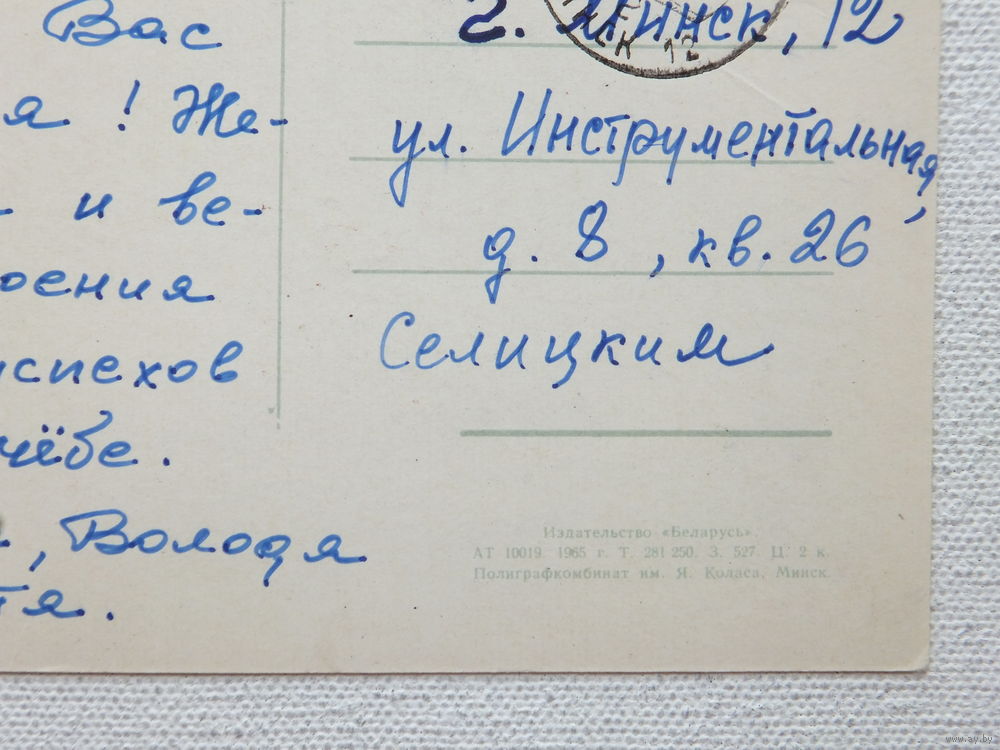 Вас
я! Же-
- и ве-
оения
успехов
чёбе.
, Володя
тя.
г. Минск, 12
ул. Инструментальная,
д. 8, кв. 26
Селицким
Издательство «Беларусь».
АТ 10019. 1965 г. Т. 281 250. З. 527. Ц. 2 к.
Полиграфкомбинат им. Я. Коласа, Минск.
СК 12
www.ay.by